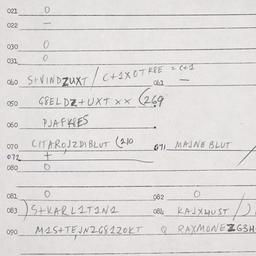 021 0
022 —
030 0
031 0
040 S+VINDZUXT / C+1XOTKBE = C+1
041 —
050 G8ELDZ+UXT xx (269
060 PJAFKES
070 CITAROJZDIBLUT (210 071 MAJNE BLUT
072 +
080 0
081 0 082 0
083 )S+KARL1T1N2 084 KAJXHUST /)
090 M1S+TEJN2G81ZOKT Q RAXMONEZG3H